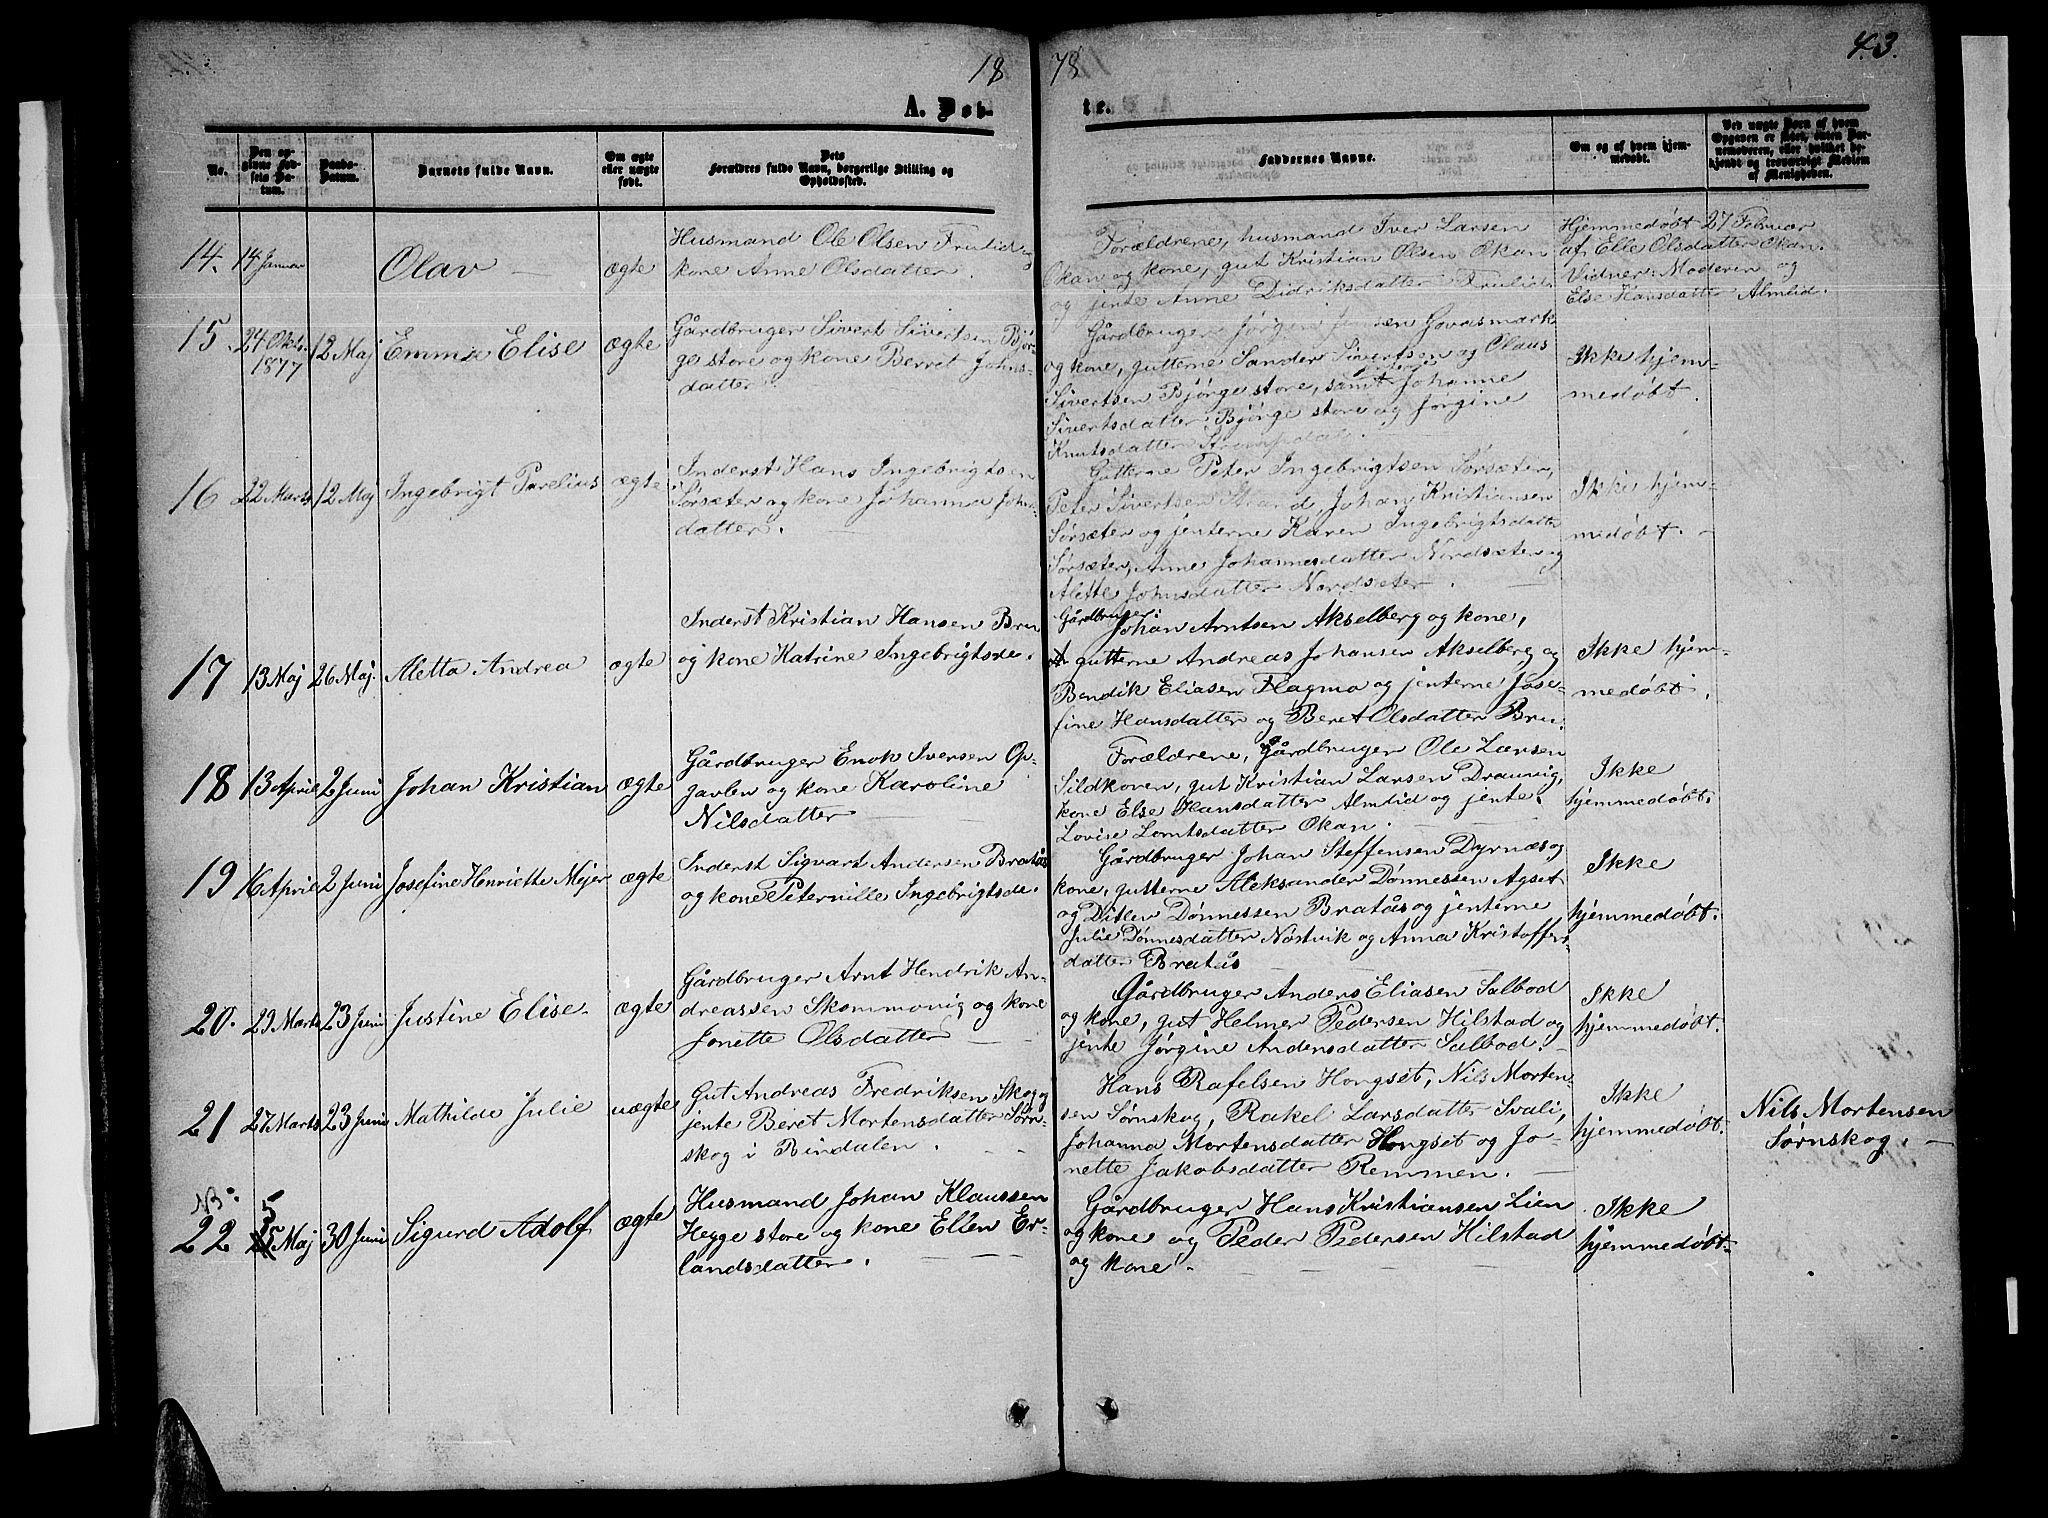 18 78
43.
A. Døb-
te.
No.
Den op-
givne Fød-
sels Da-
tum.
Daabs-
Datum.
Barnets fulde Navn.
Om ægte
eller uægte
født.
Dets
Forældres fulde Navn, borgerlige Stilling og
Opholdssted.
Faddernes Navne.
Om og af hvem hjem-
medøbt.
Ved uægte Børn af hvem
Opgaven er skeet, enten Bar-
nemoderen, eller hvilket be-
kjendt og troværdigt Medlem
af Menigheden.
14. 14 Januar
Olav
ægte
Husmand Ole Olsen Frulid og
kone Anne Olsdatter.
Forældrene, husmand Iver Larsen
Okan og kone, gut Kristian Olsen Okan
og jente Anne Didriksdatter Frulid.
Hjemmedøbt 27 Februar
af Elle Olsdatter Okan.
Vidner: Moderen og
Else Hansdatter Almlid.
15. 24 Oktb.
1877
12 Maj
Emma Elise
ægte
Gårdbruger Sivert Sivertsen Bjør-
ge store og kone Berret Johns-
datter.
Gårdbruger Jørgen Govasmark
og kone, gutterne Sander Sivertsen og Claus
Sivertsen Bjørge store, samt Johanne
Sivertsdatter Bjørge store og Jørgine
Knutsdatter
Ikke hjem-
medøbt.
16 22 Marts 12 Maj
Ingebrigt Parelius
ægte
Inderst Hans Ingebrigtsen
Sørsæter og kone Johanna Johns-
datter.
Gutterne Peter Ingebrigtsen Sørsæter,
Peter Sivertsen Strand, Johan Kristiansen
Sørsæter og jenterne Karen Ingebrigtsdatter
Sørsæter, Anne Johannesdatter Nordsæter og
Alette Johnsdatter Nordsæter.
Ikke hjem-
medøbt.
17 13 Maj 26 Maj.
Aletta Andrea
ægte
Inderst Kristian Hansen Bru
og kone Katrine Ingebrigtsde.
Gårdbruger:
Johan Arntsen Akselberg og kone,
gutterne Andreas Johansen Akselberg og
Bendik Eliasen Flagma og jenterne Jose-
fine Hansdatter og Beret Olsdatter Bru.
Ikke hjem-
medøbt.
18 13 April 2 Juni
Johan Kristian
ægte
Gårdbruger Enok Iversen Op-
gavlen og kone Karoline
Nilsdatter
Forældrene, Gårdbruger Ole Larsen
Sildkoven, gut Kristian Larsen Drauvig,
kone Else Hansdatter Almlid og jente
Lovise Lorntsdatter Okan.
Ikke
hjemmedøbt.
19 16 April 2 Juni
Josefine Henriette Mejer
ægte
Inderst Sigvart Andersen Bratås
og kone Peternille Ingebrigtsde.
Gårdbruger Johan Steffensen Dyrnæs og
kone, gutterne Aleksander Dønnessen Agset
og Ditlev Dønnessen Bratås og jenterne
Julie Dønnesdatter Nostvik og Anna Kristoffers-
datter Bratås
Ikke
hjemmedøbt.
20. 29 Marts 23 Juni
Justine Elise
ægte
Gårdbruger Arnt Hendrik An-
dreassen Skommovig og kone
Jonette Olsdatter
Gårdbruger Anders Eliasen Salbod
og kone, gut Helmer Pedersen Hilstad og
jente Jørgine Andersdatter Salbod.
Ikke
hjemmedøbt.
21 27 Marts 23 Juni
Mathilde Julie
uægte
Gut Andreas Fredriksen Skog og
jente Beret Mortensdatter Sørn-
skog i Bindalen.
Hans Rafelsen Hongset, Nils Morten-
sen Sørnskog, Rakel Larsdatter Svali,
Johanna Mortensdatter Hongset og Jo-
nette Jakobsdatter Remmen.
Ikke
hjemmedøbt.
Nils Mortensen
Sørnskog.
NB.
22 5 Maj 30 Juni
Sigurd Adolf
ægte
Husmand Johan Klaussen
Hegge store og kone Ellen Er-
landsdatter.
Gårdbruger Hans Kristiansen Lien
og kone og Peder Pedersen Hilstad
og kone.
Ikke
hjemmedøbt.